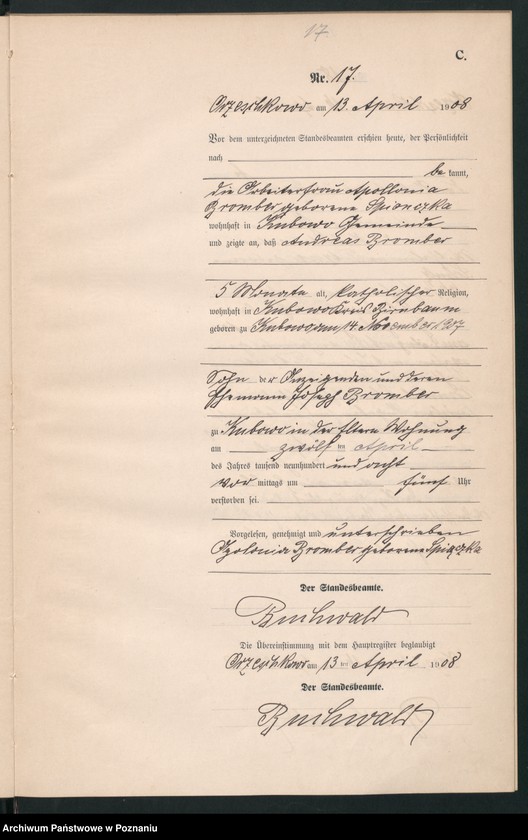 17.
C.
Nr. 17.
Orzeschkowo am 13. April 1908
Vor dem unterzeichneten Standesbeamten erschien heute, der Persönlichkeit
nach
be kannt,
die Arbeiterfrau Apollonia
Bromber geborene Spionczka
wohnhaft in Kubowo Gemeinde
und zeigte an, daß Andreas Bromber
5 Monate alt, katholischer Religion,
wohnhaft in Kubowo Kreis Birnbaum
geboren zu Kubowo am 14. November 1907
Sohn der Anzeigenden und deren
Ehemann Joseph Bromber
zu Kubowo in der Eltern Wohnung
am zwölf ten April
des Jahres tausend neunhundert und acht
Vor mittags um fünf Uhr
verstorben sei.
Vorgelesen, genehmigt und unterschrieben
Apolonia Bromber geborene Spiączka
Der Standesbeamte.
Buchwald
Die Übereinstimmung mit dem Hauptregister beglaubigt
Orzeschkowo am 13 ten April 1908
Der Standesbeamte.
Buchwald
Archiwum Państwowe w Poznaniu